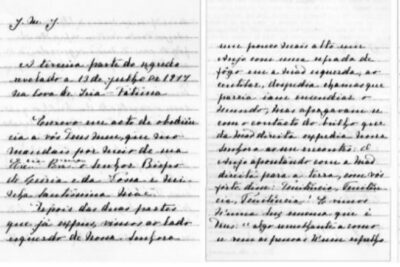 J. M. J.
A terceira parte do segredo
revelado a 13 de julho de 1917
na Cova de Iria - Fátima
Escrevo em acto de obediên-
cia a vós Deus meu, que mo
mandais por meio de sua
Ex.cia Rev.ma o Senhor Bispo
de Leiria e da Vossa e mi-
nha Santíssima Mãe.
Depois das duas partes
que já expus, vimos ao lado
esquerdo de Nossa Senhora
um pouco mais alto um
Anjo com uma espada de
fôgo em a mão esquerda; ao
centilar, despedia chamas que
parecia iam encendiar o
mundo; mas apagavam-se
com o contacto do brilho que
da mão direita expedia Nossa
Senhora ao seu encontro: O
Anjo apontando com a mão
direita para a terra, com voz
forte disse: Penitência, Penitên-
cia, Penitência! E vimos
n'uma luz emensa que é
Deus: "algo semelhante a como
se vêm as pessoas n'um espelho